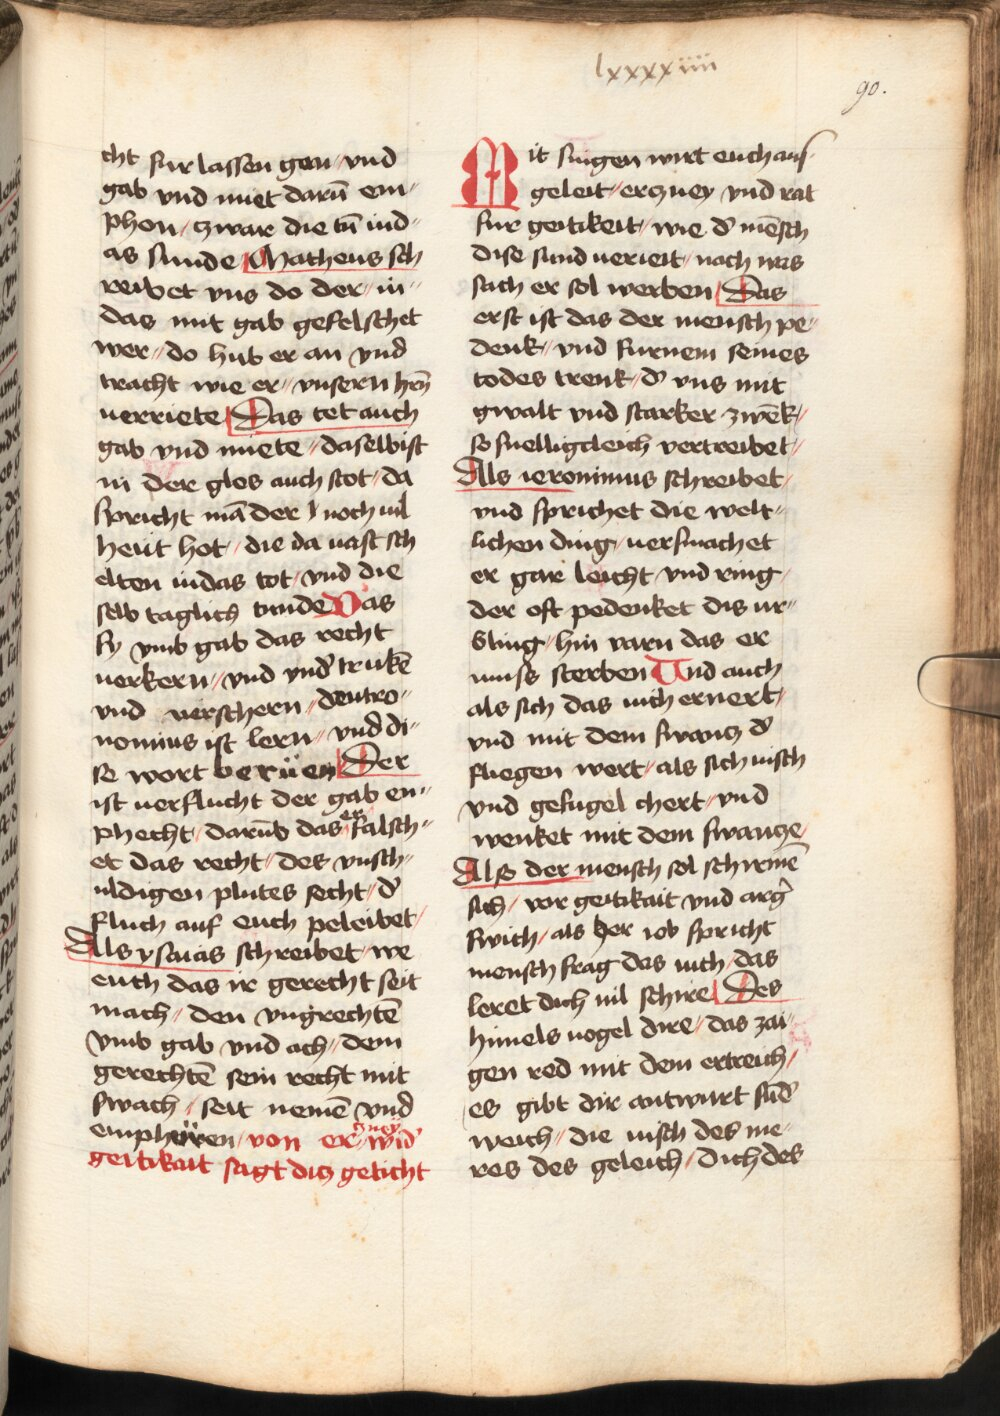 lxxxxiiii
90.
cht fur lassen gen / vnd
gab vnd miet darū em-
phen / zwar die tūt iud-
as sunde / Matheus sch
reibet vns do der / iu-
das mit gab gefelschet
wer / do hub er an vnd
tracht wie er / vnsern hrn̄
uerriete / Das tet auch
gab vnd miete / daselbist
in der glos auch stot / da
spricht mā der / noch uil
heut hot / die da uast sch
elten iudas tot / vnd die
selb taglich tunde Das
sy vmb gab das recht
uerkern / vnd vnd' trukē
vnd verschern / deutro-
nomius ist lern / vnd di-
se wort berüen / Der
ist uerflucht der gab en-
phecht / darūb das er falsch-
et das recht / des vnsch-
uldigen plutes secht / d'
fluch auf euch peleibet /
Als ysaias schreibet / we
euch das ir gerecht seit
mach / den vngrechtē
vmb gab vnd ach / dem
gerechtē sein recht mit
swach / seit nemē vnd
emphüren / von erczney wid'
geitikait sagt dis geticht
Mit singen wirt euch auf-
geleit / erczney vnd rat
fur geitikeit / wie d' mēsch
dise sund uerieit / nach was
sach er sol werben / Das
erst ist das der mensch pe-
denk / vnd furnem seines
todes trenk / d' vns mit
gwalt vnd starker zwēk /
so snelligcleich vertreibet /
Als ieronimus schreibet /
vnd sprichet die welt-
lichen ding / uersmachet
er gar leicht / vnd ring /
der oft pedenket dis ur-
sling / hin varn das er
muss sterben Und auch
als sich das uich ernert /
vnd mit dem swancz d'
fliegen wert / als sich uisch
vnd gefugel chert / vnd
wenket mit dem swancze /
Also der mensch sol schirmē
sich / vor geitikait vnd arg'
swich / als der iob spricht
mensch frag das uich / das
leret dich uil schire / Des
himels uogel dire / das zai-
gen red mit dem ertreich /
es gibt dir antwurt sund'
weich / die uisch des me-
res des geleich / dich des